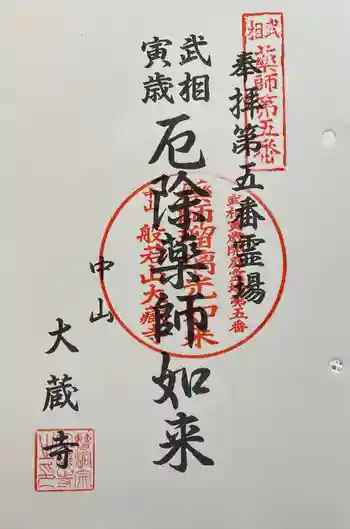 武相
薬師第五番
奉拝第五番霊場
武相
寅歳
厄除薬師如来
薬師瑠璃光如来
中山
般若山大蔵寺
中山
大蔵寺